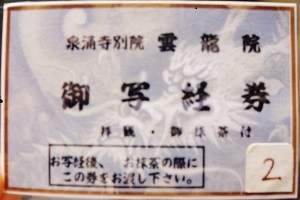 泉涌寺別院 雲龍院
御写経券
拝観・御抹茶付
お写経後、 お抹茶の際に
この券をお渡し下さい。
2